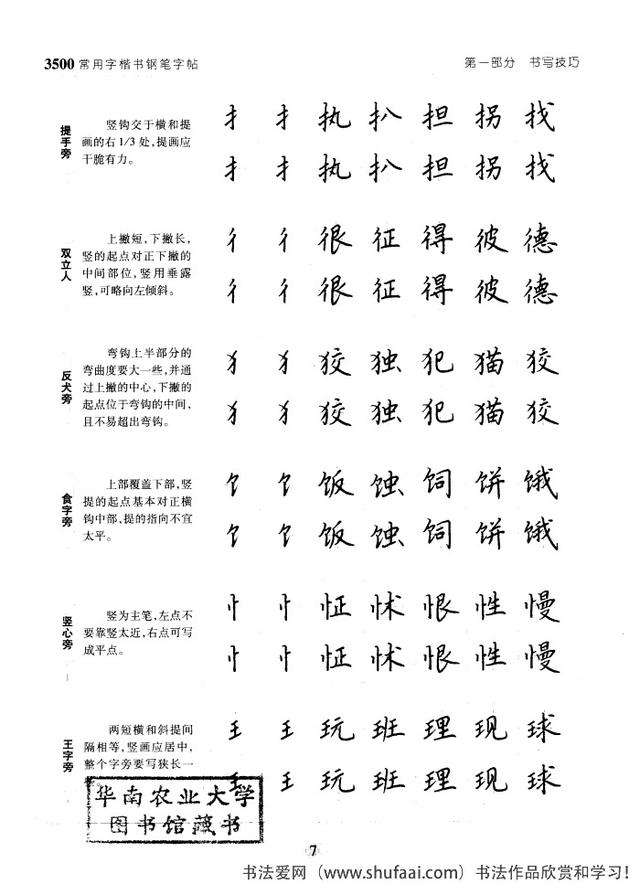 3500常用字楷书钢笔字帖
第一部分 书写技巧
提手旁
竖钩交于横和提
画的右1/3处,提画应
干脆有力。
扌 扌 执 扒 担 拐 找
扌 扌 执 扒 担 拐 找
双立人
上撇短,下撇长,
竖的起点对正下撇的
中间部位,竖用垂露
竖,可略向左倾斜。
彳 彳 很 征 得 彼 德
彳 彳 很 征 得 彼 德
反犬旁
弯钩上半部分的
弯曲度要大一些,并通
过上撇的中心,下撇的
起点位于弯钩的中间,
且不易超出弯钩。
犭 犭 狡 独 犯 猫 狡
犭 犭 狡 独 犯 猫 狡
食字旁
上部覆盖下部,竖
提的起点基本对正横
钩中部,提的指向不宜
太平。
饣 饣 饭 蚀 饲 饼 饿
饣 饣 饭 蚀 饲 饼 饿
竖心旁
竖为主笔,左点不
要靠竖太近,右点可写
成平点。
忄 忄 怔 怵 恨 性 慢
忄 忄 怔 怵 恨 性 慢
王字旁
两短横和斜提间
隔相等,竖画应居中,
整个字旁要写狭长一
王 王 玩 班 理 现 球
王 王 玩 班 理 现 球
华南农业大学
图书馆藏书
7
书法爱网(www.shufaai.com)书法作品欣赏和学习!